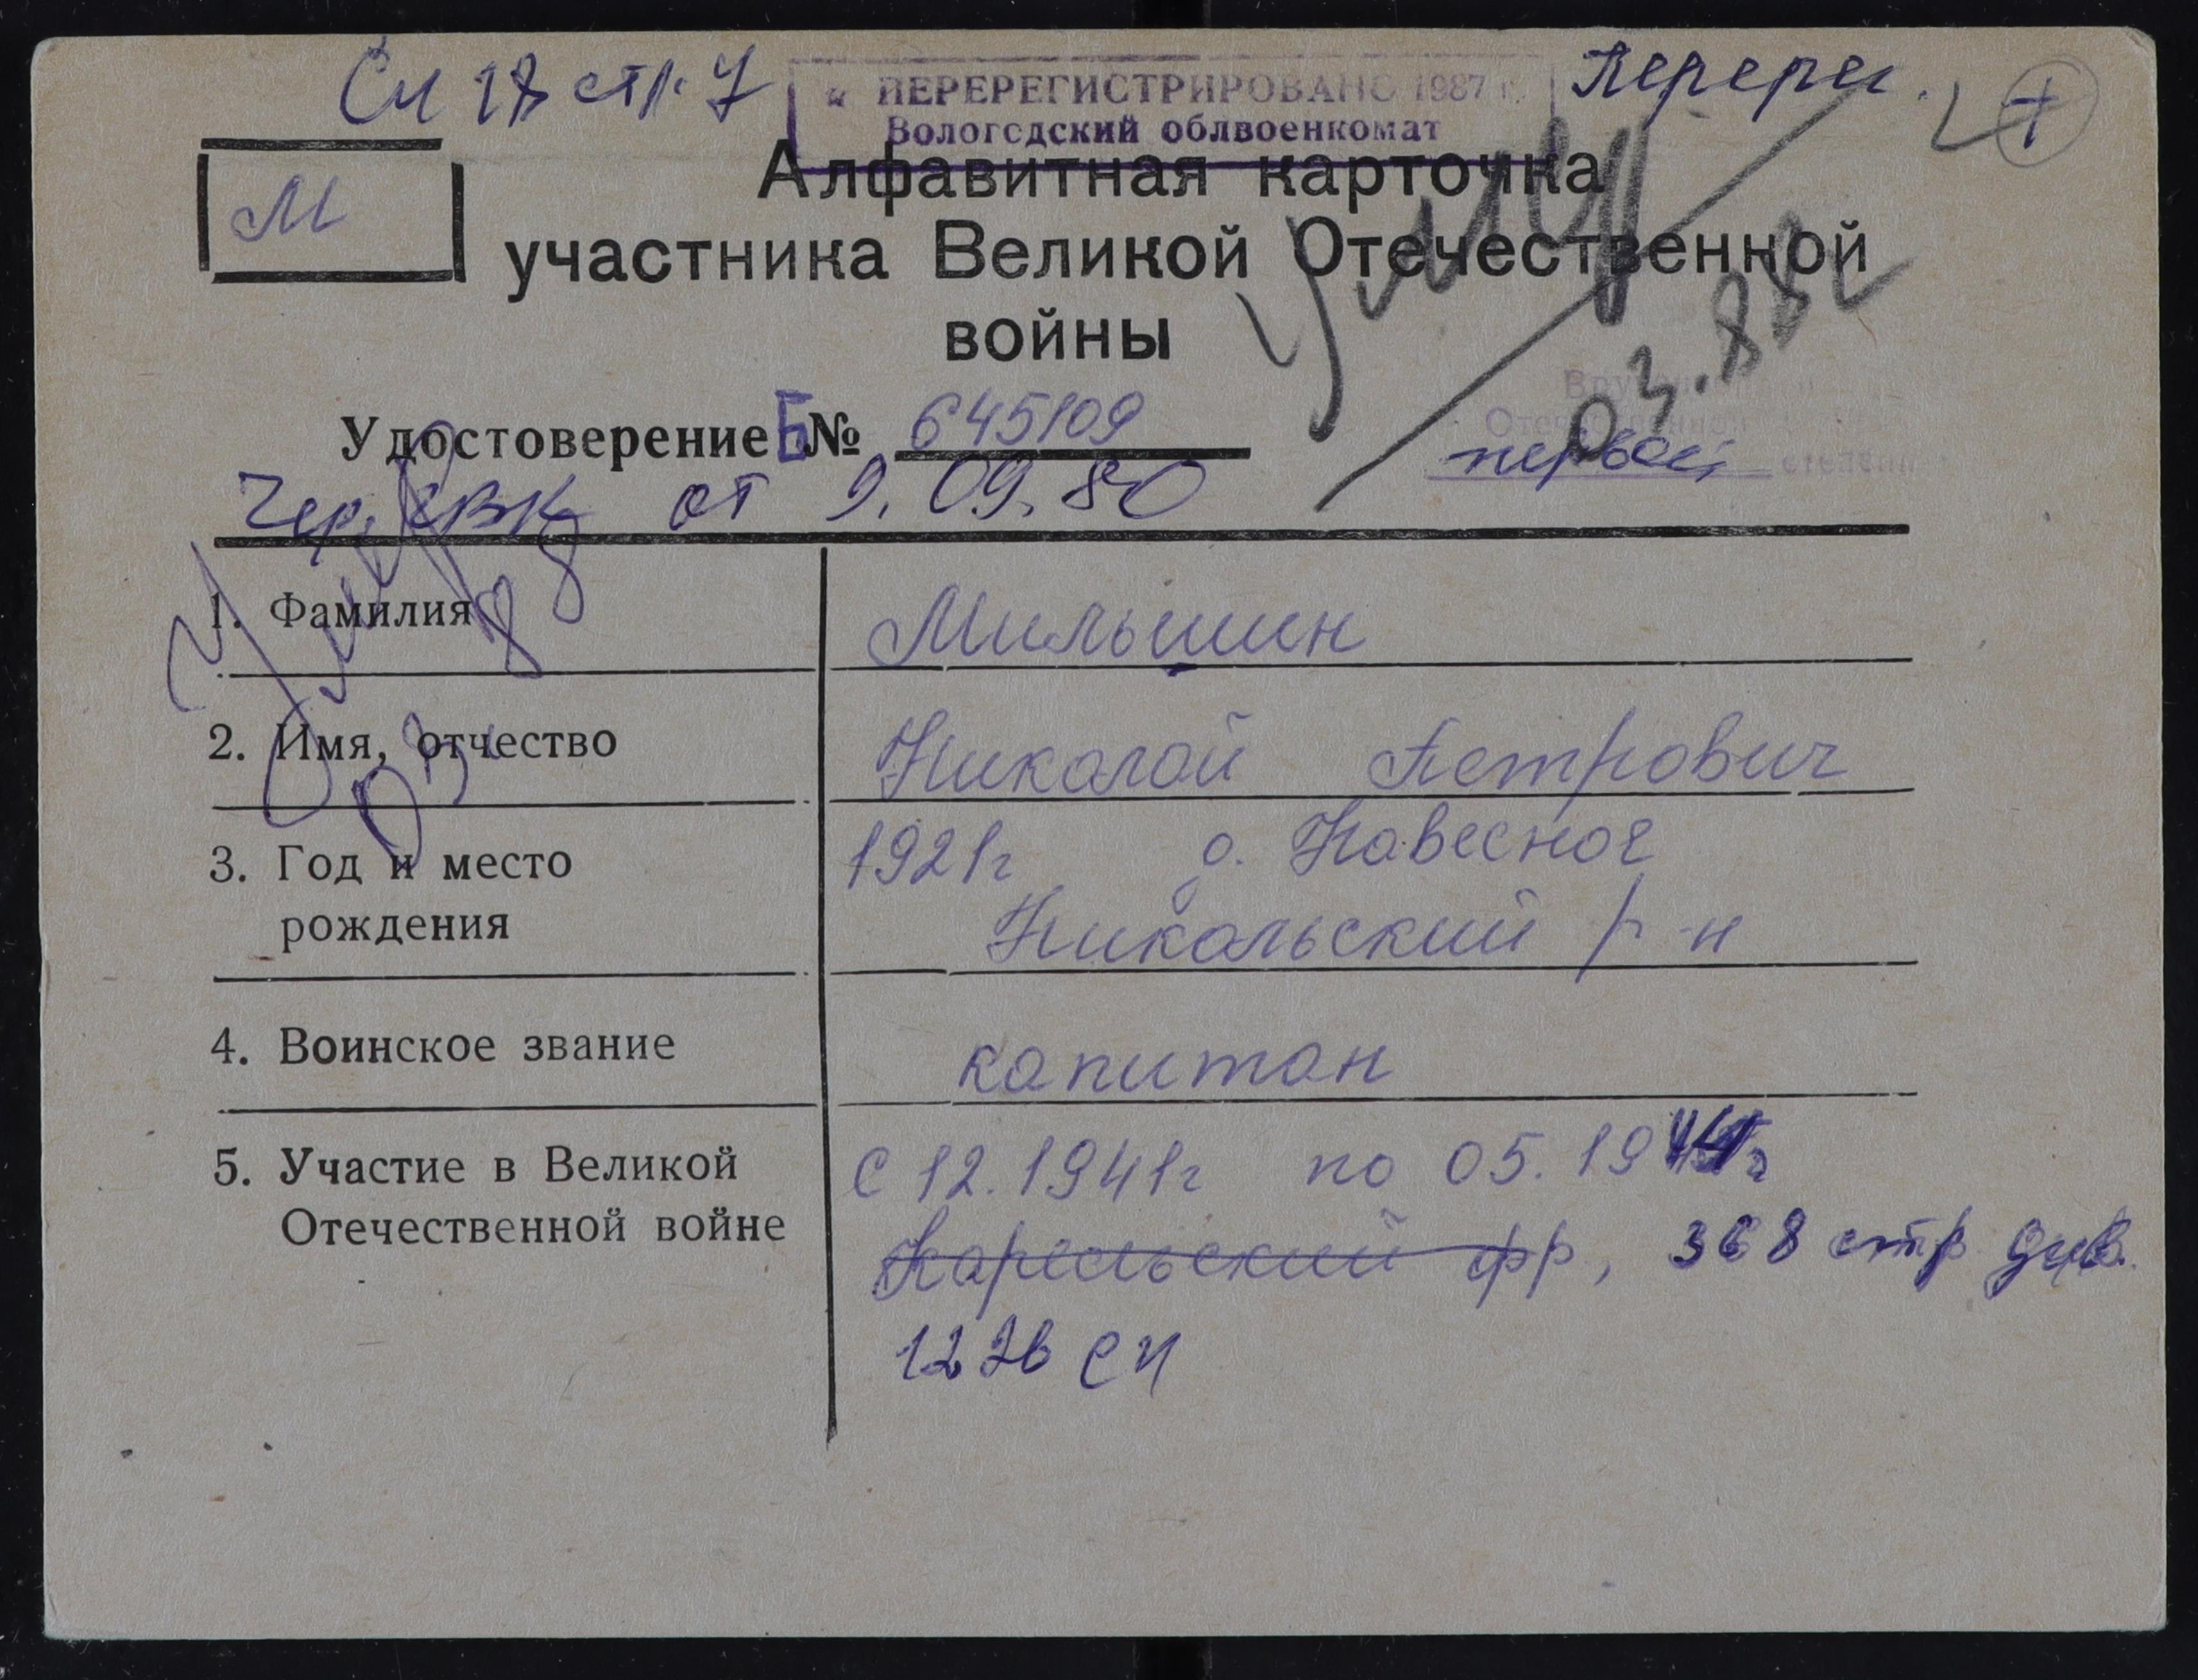 Сп 18 стр. 7
ПЕРЕРЕГИСТРИРОВАНО 1987 г.
Вологодский облвоенкомат
Перерег.
+
М
Алфавитная карточка
участника Великой Отечественной
войны
Умер
03.88г
Удостоверение Б № 645109
Вручен
Отечественной
первой степени
Чер. РВК от 9.09.80
Умер
03.88
1. Фамилия Мильшин
2. Имя, отчество Николай Петрович
3. Год и место 1921г д. Навесное
рождения Никольский р-н
4. Воинское звание капитан
5. Участие в Великой с 12.1941г по 05.1944г
Отечественной войне Карельский фр, 368 стр див.
1226 СП